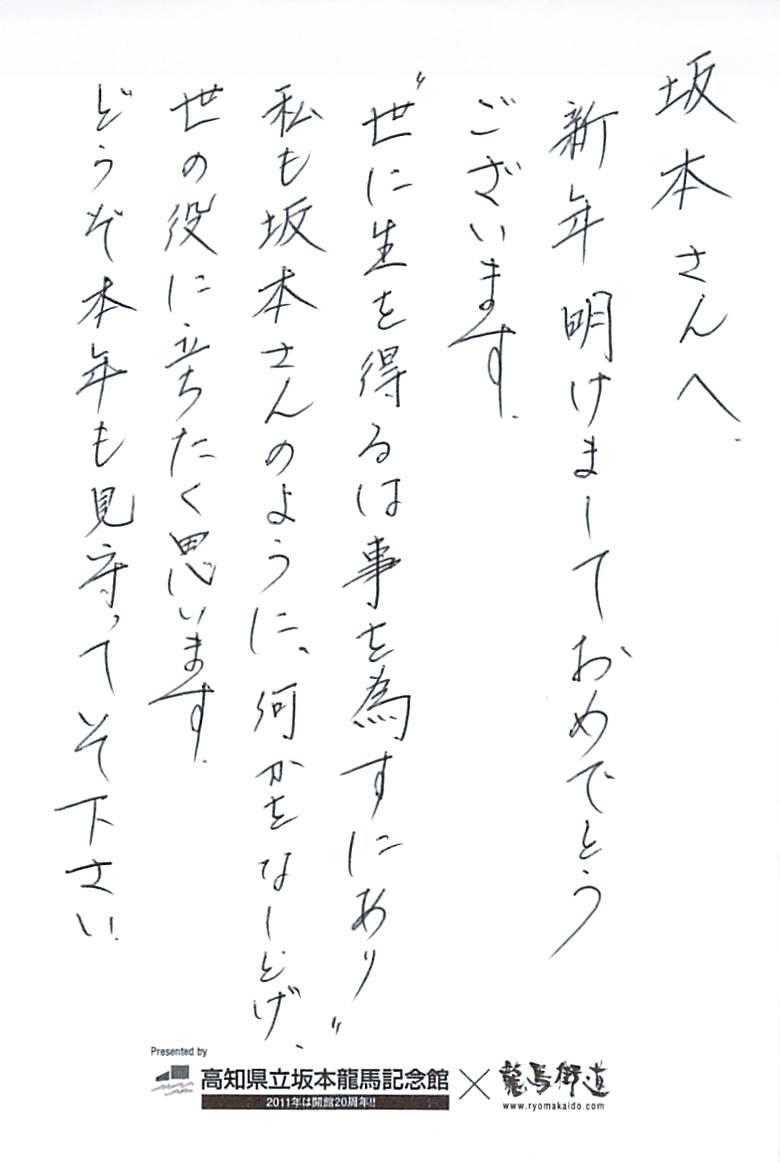 坂本さんへ.
新年明けましておめでとう
ございます.
“世に生を得るは事を為すにあり”
私も坂本さんのように、何かをなしとげ.
世の役に立ちたく思います.
どうぞ本年も見守ってそ下さい.
Presented by
高知県立坂本龍馬記念館×龍馬街道
2011年は開館20周年!!
www.ryomakaido.com